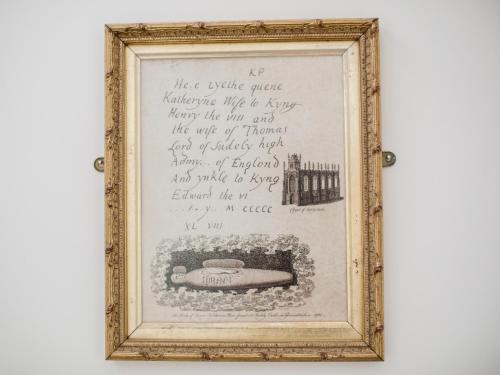 KP
He.e Lyethe quene
Katheryne Wife to Kyng
Henry the VIII and
the wife of Thomas
Lord of Sudely high
Admy... of Englond
And ynkle to Kyng
Edward the VI
.... y.. M CCCCC
XL VIII
Chapel of